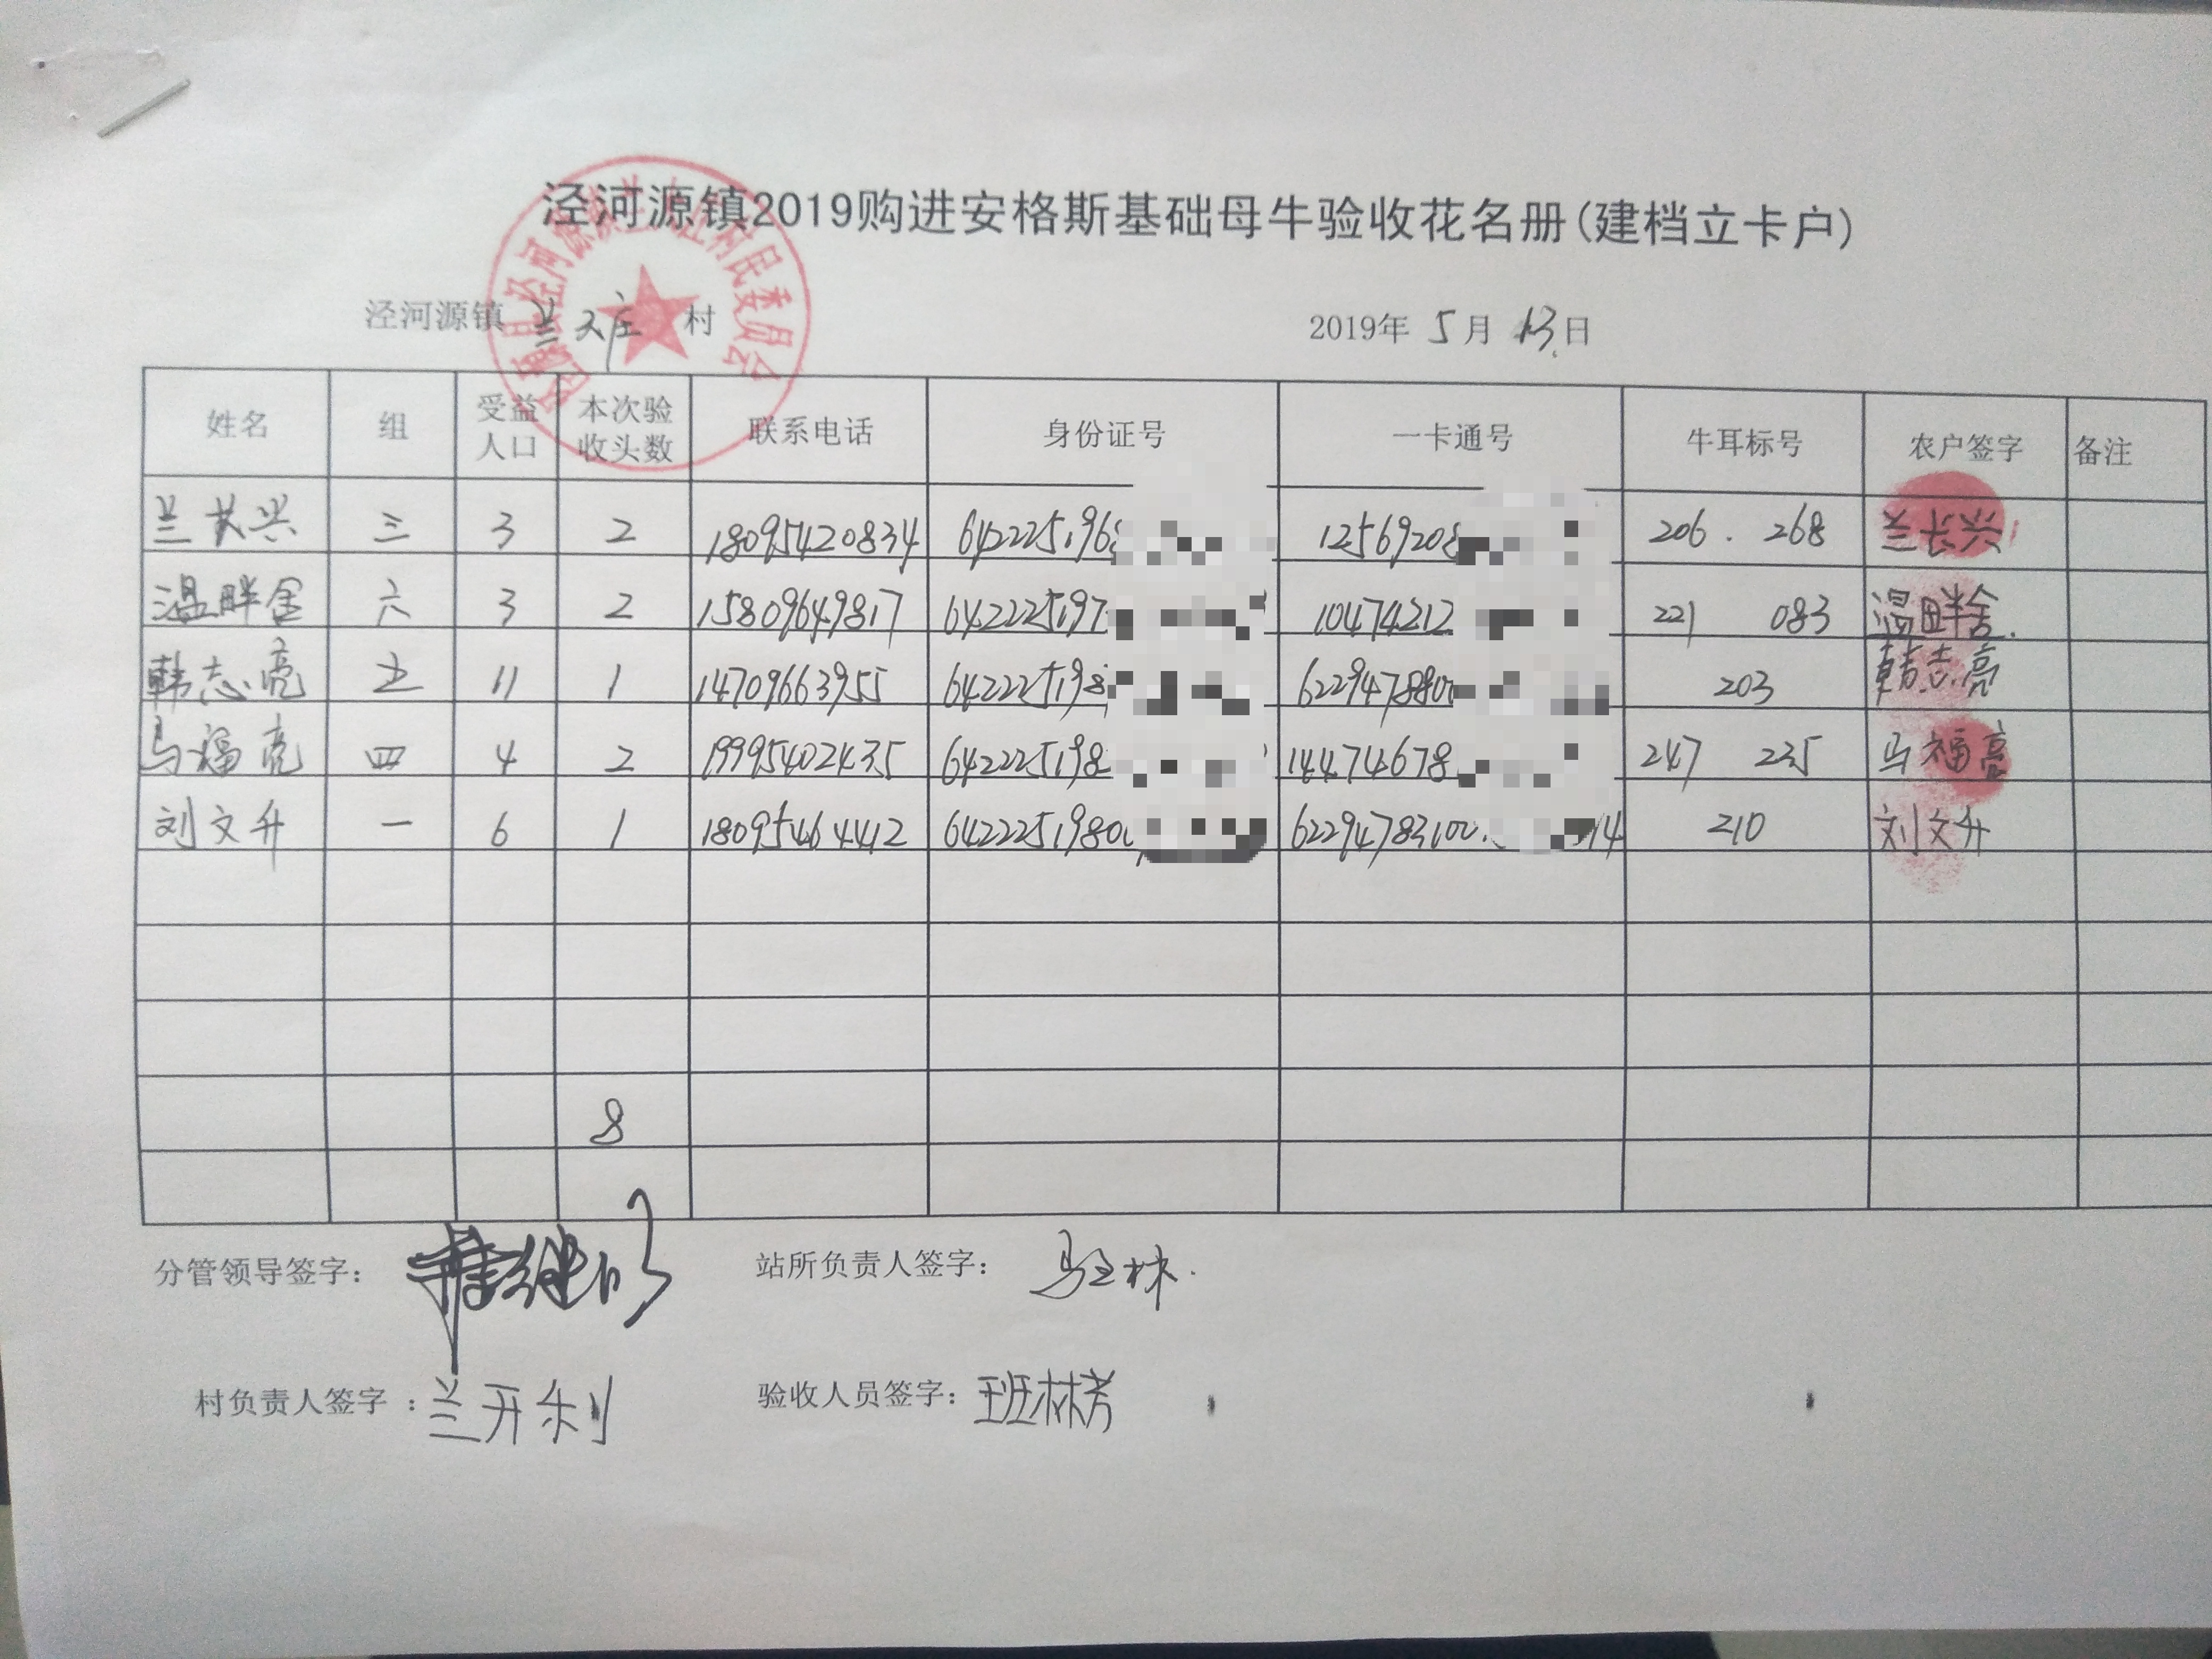 泾河源镇2019购进安格斯基础母牛验收花名册(建档立卡户)
泾河源镇 兰大庄 村 2019年 5月 13日
姓名 组 受益人口 本次验收头数 联系电话 身份证号 一卡通号 牛耳标号 农户签字 备注
兰长兴 三 3 2 18095420834 642225196 12569208 206. 268 兰长兴
温畔舍 六 3 2 15809649817 642225197 10474212 221 083 温畔舍
韩志亮 五 11 1 14709663955 642225198 622947880 203 韩志亮
马福亮 四 4 2 19995402435 642225198 14474678 247 235 马福亮
刘文升 一 6 1 18095464412 6422251980 62294783100 14 210 刘文升
8
分管领导签字： 站所负责人签字：
村负责人签字：兰开利 验收人员签字：班林芳